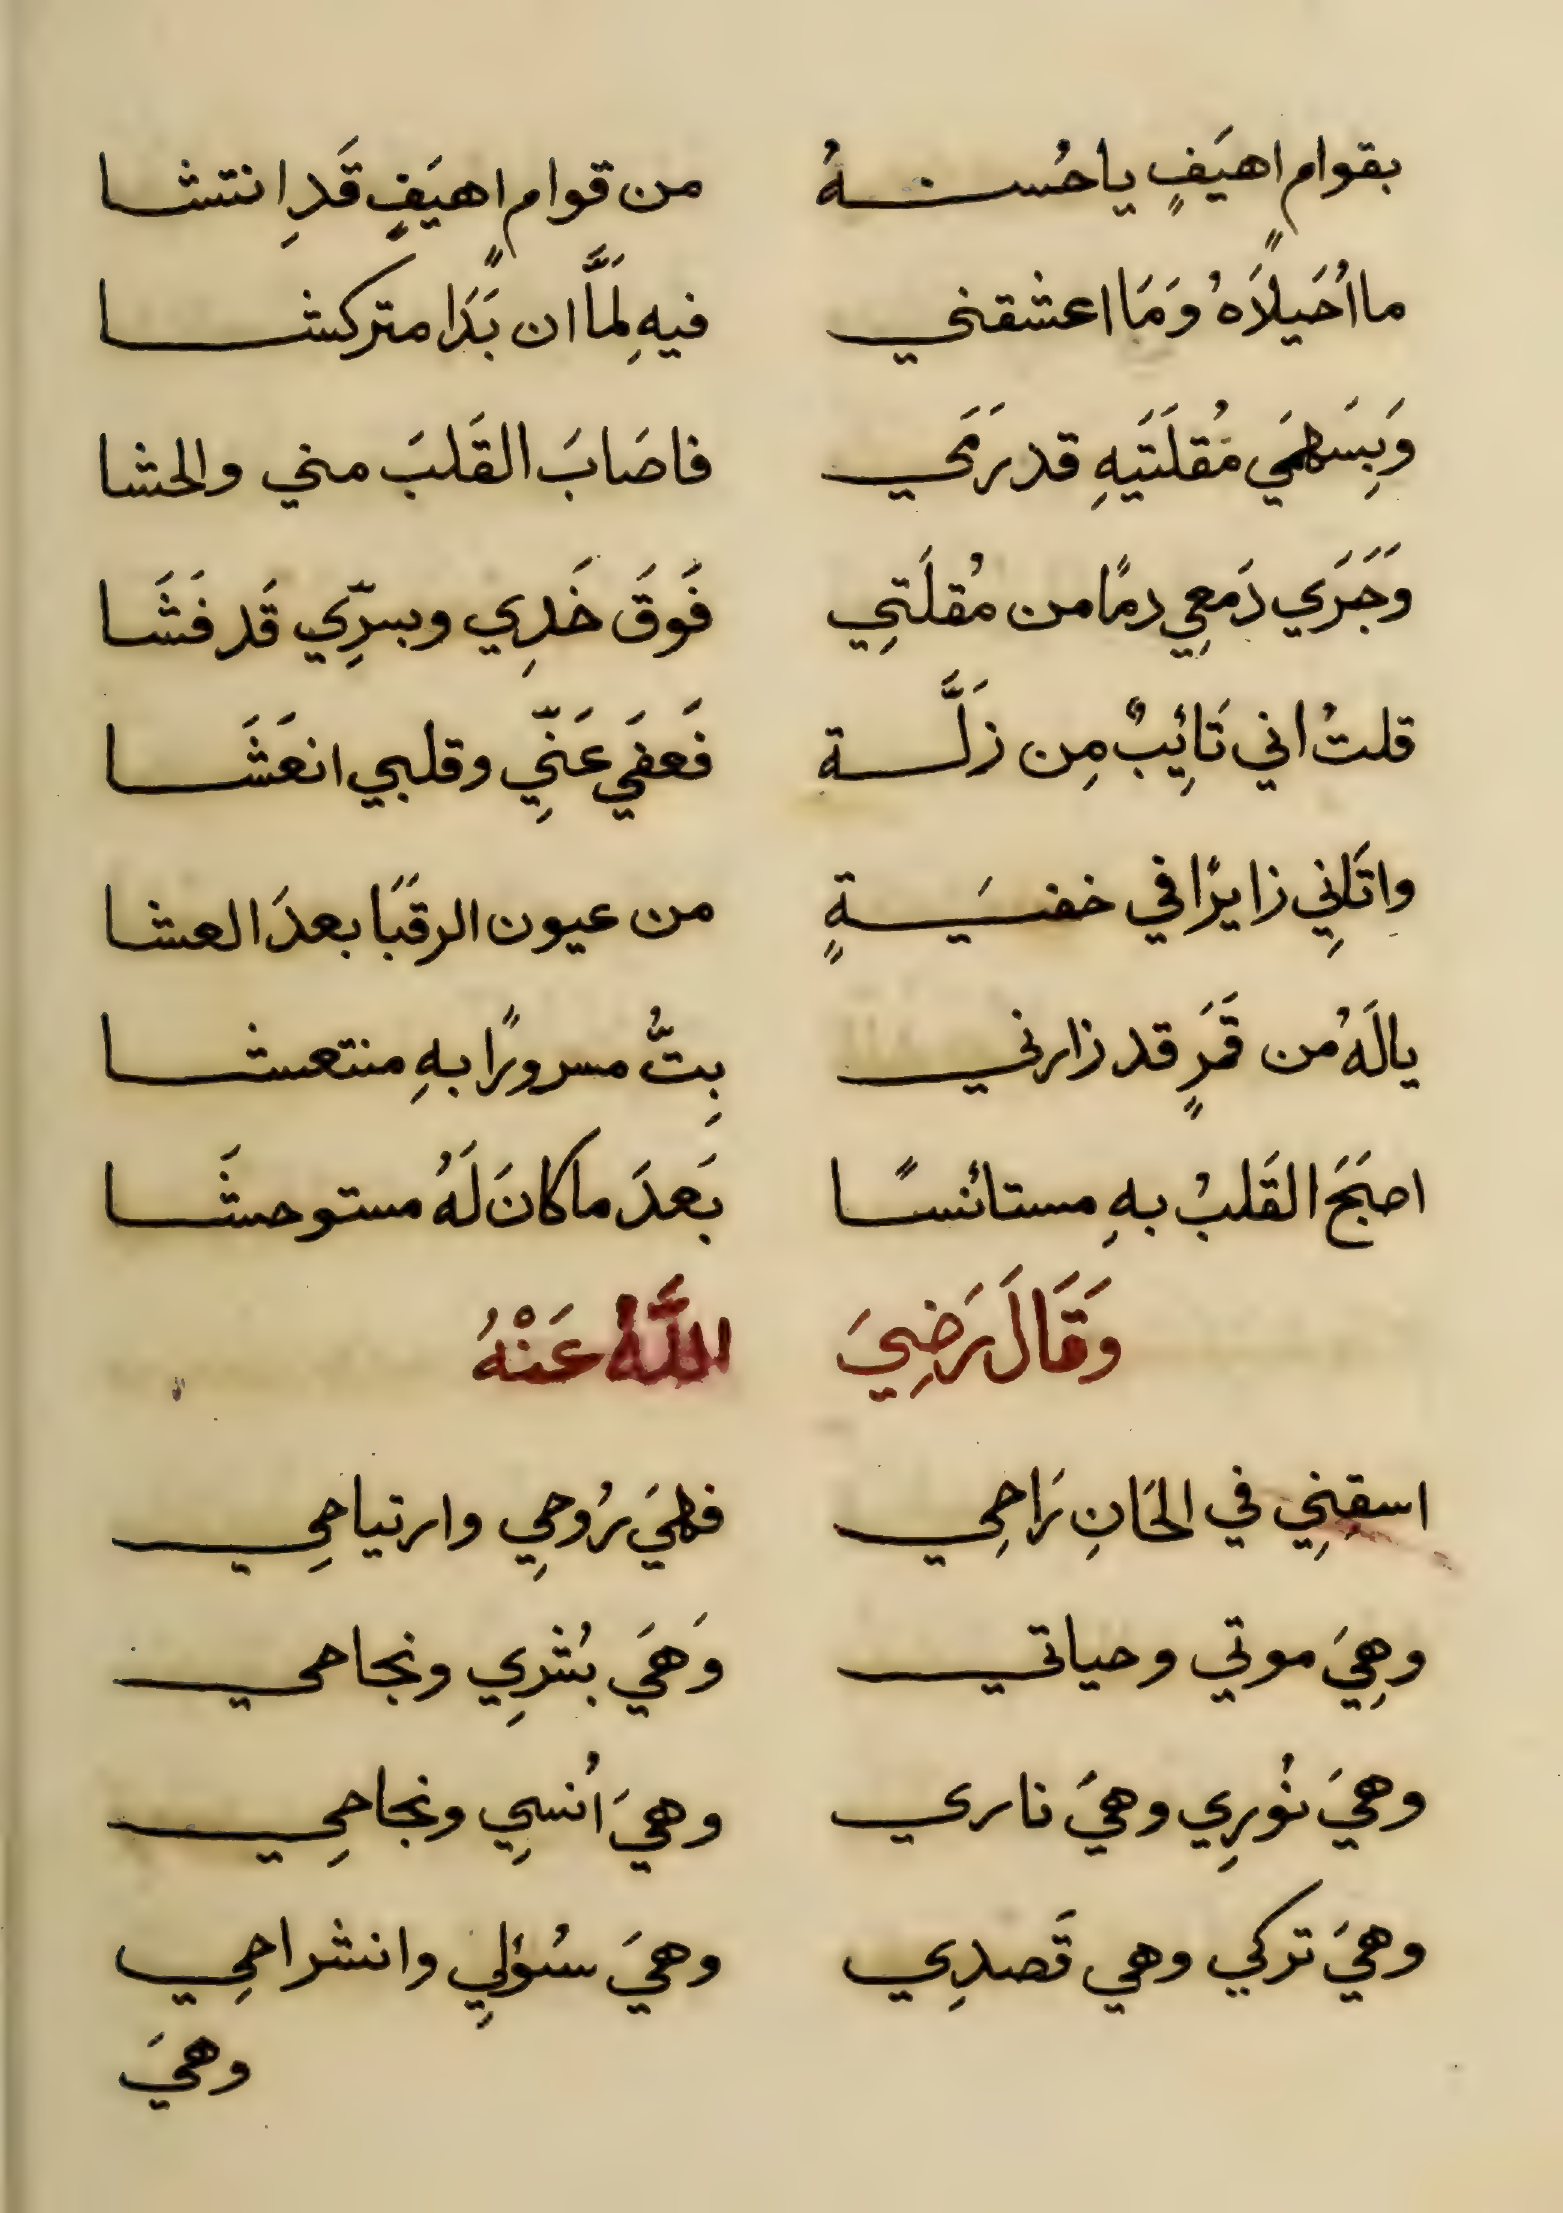 بقوام اهيَفٍ ياحُسنهُ من قوامٍ اهيَفٍ قَدِ انتشا
ما اُحَيلاَهُ وَمَا اعشقني فيهِ لِمَّا ان بَدَا متركشا
وَبِسَهمَي مُقلَتَيهِ قد رَمَي فاصَابَ القَلبَ مني والحشا
وَجَرَي دَمعِي دمًا من مُقلَتِي فَوقَ خَدِي وبسرِّي قَد فَشَا
قلتُ اني تَائِبٌ مِن زَلَّة فَعفَي عَنِّي وقلبي انعَشَا
واتَانِي زايرًا في خفيَةٍ من عيون الرقبَا بعدَ العشا
يالَهُ من قَمَرٍ قد زارني بِتُّ مسرورًا بهِ منتعشا
اصبَحَ القَلبُ بهِ مستائنسًا بَعدَ ما كانَ لَهُ مستوحشَا
وَقَالَ رَضِيَ اللَّهُ عَنْهُ
اسقِنِي في الحَانِ رَاحِي فهيَ رُوحِي وارتياحِي
وهِيَ موتي وحياتي وَهيَ بُشرِي ونجاحي
وهيَ نُورِي وهيَ ناري وهيَ اُنسِي ونجاحِي
وهيَ تركي وهي قَصدِي وهيَ سُؤلِي وانشراحِي
وهيَ